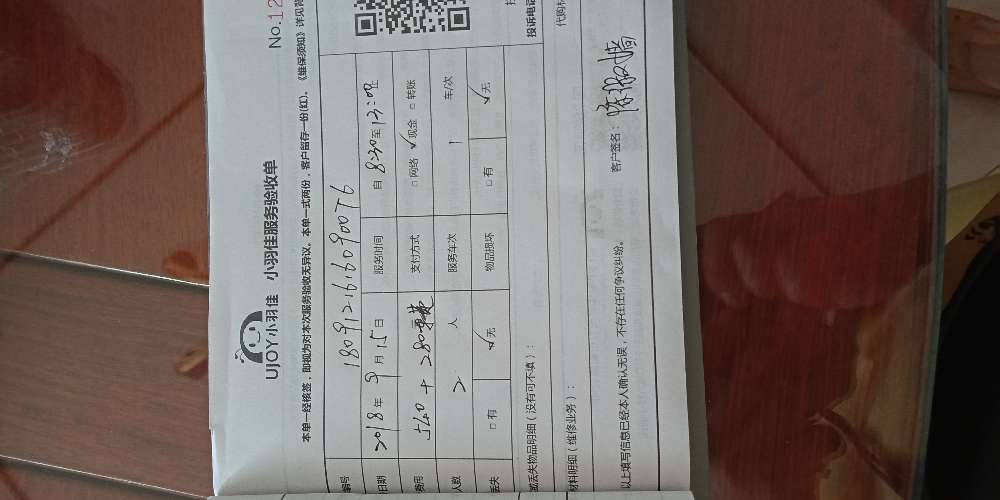 UJOY小羽佳 小羽佳服务验收单
No.12
本单一经核签，即视为对本次服务验收无异议。本单一式两份，客户留存一份(红)。《维保须知》详见背
编号 18091216160900T6
日期 2018年9月15日 服务时间 自8:30至13:00止
费用 540+280 支付方式 □网络 ✓现金 □转账
人数 2人 服务车次 1 车/次
丢失 □有 ✓无 物品损坏 □有 ✓无
或丢失物品明细（没有可不填）：
投诉电话
材料明细（维修业务）：
代购材
以上填写信息已经本人确认无误，不存在任何争议纠纷。 客户签名：